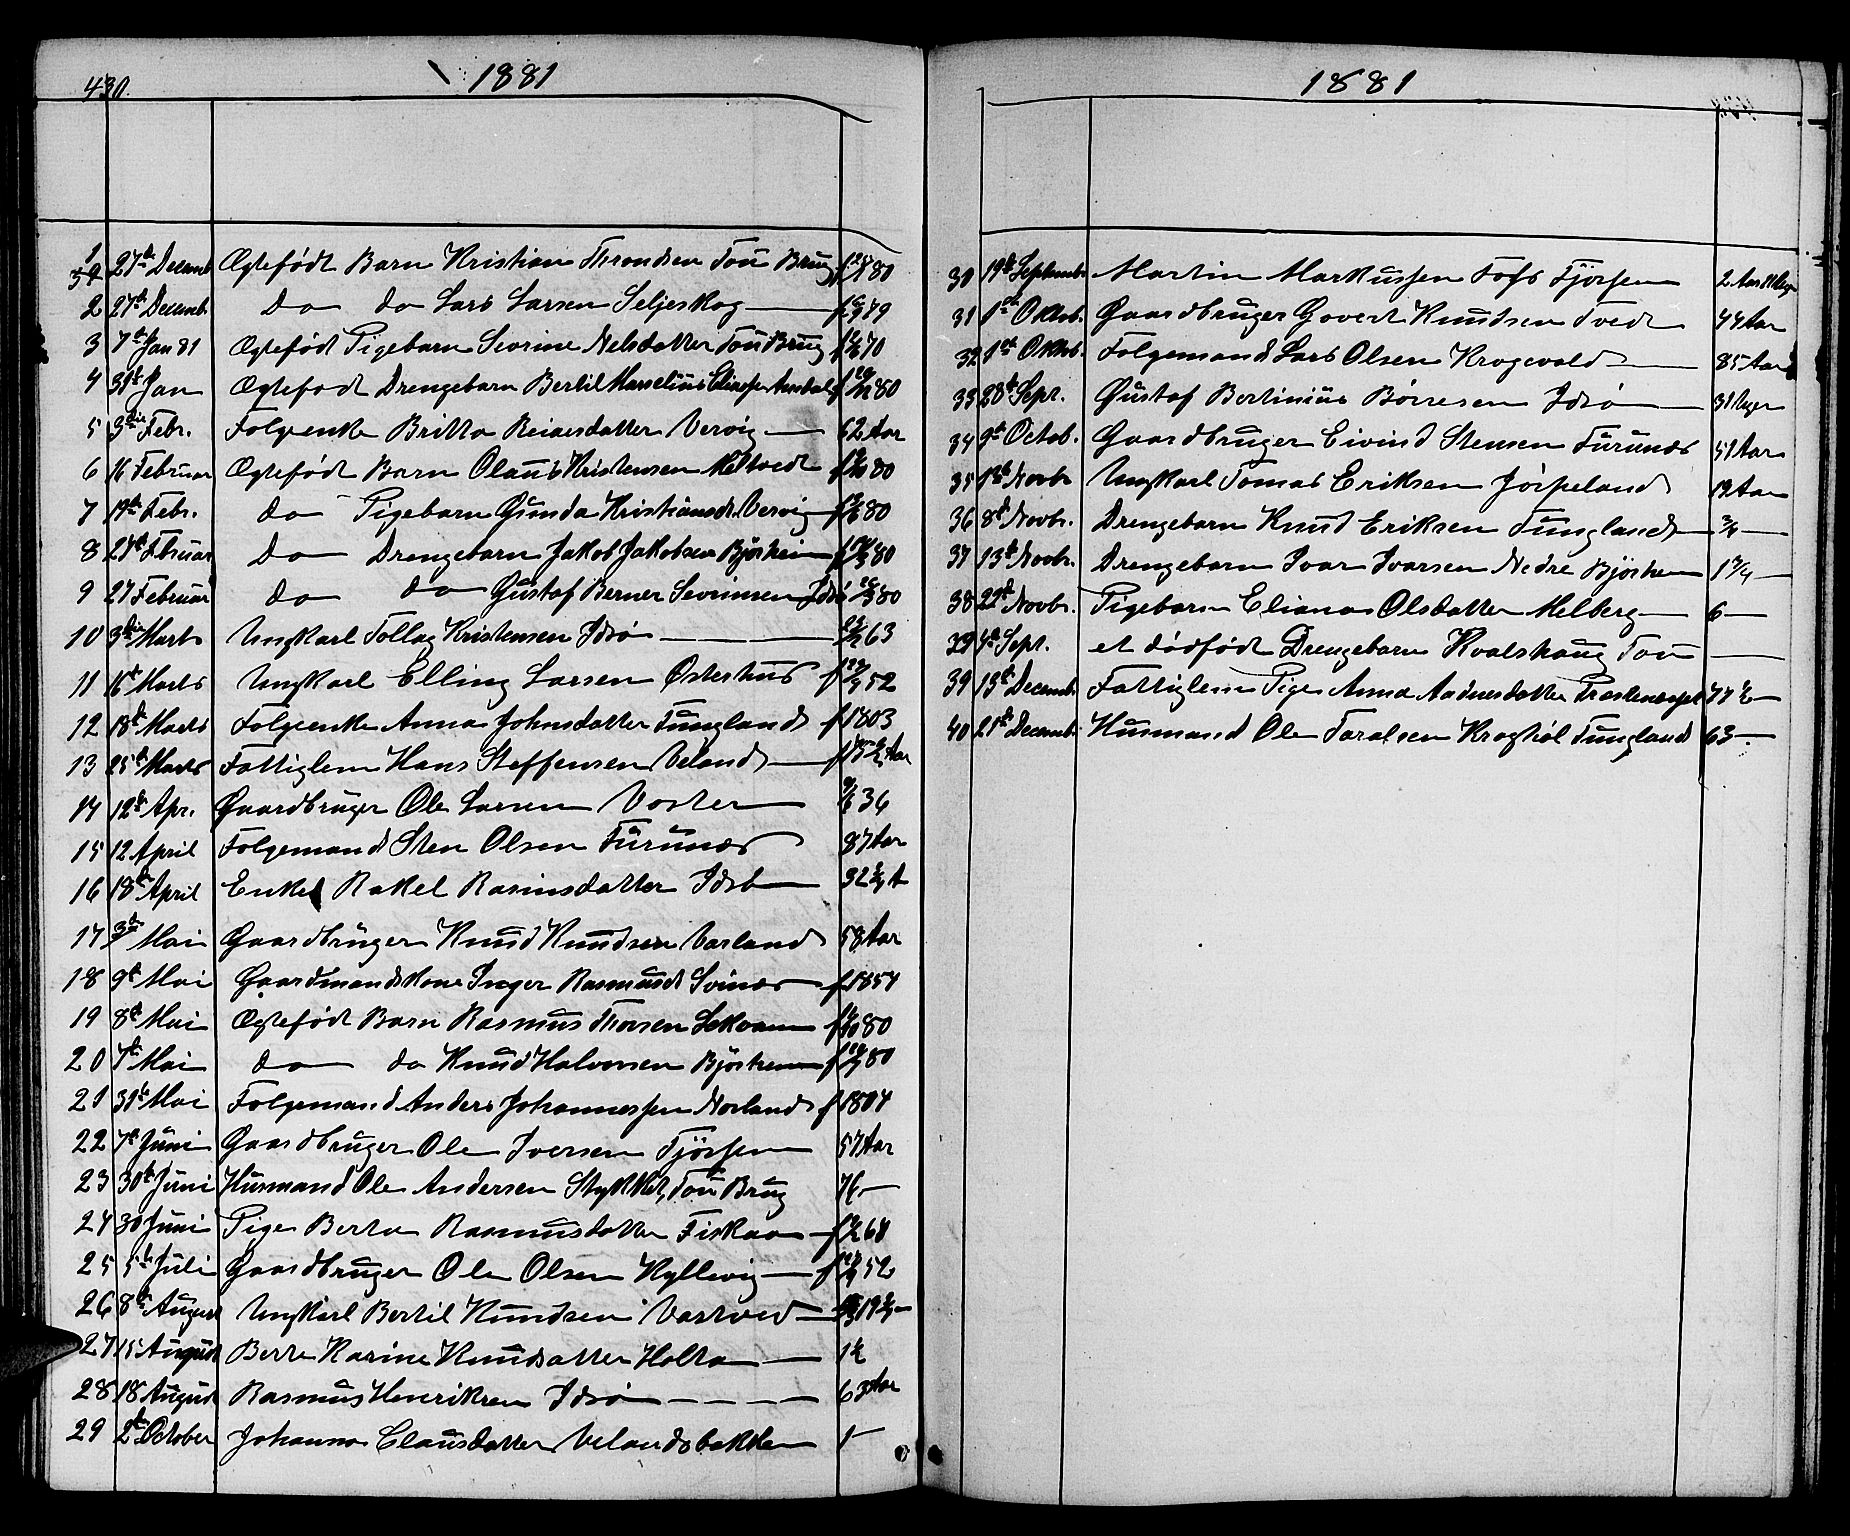 430.
1881
1 27de Decemb Ægtefødt Barn Kristian Throndsen Tou Brug 80
2 27de Decemb. do do Lars Larsen Seljeskog — 79
3 7de Jan 81 Ægtefød Pigebarn Sevrine Nelsdatter Tou Brug 70
4 31te Jan Ægtefødt Drengebarn Bertil 80
5 3die Febr. Folgenke Britta Reiersdatter Vervig — 62 Aar
6 16 Februar Ægtefødt Barn Olaus Kristensen Meltvedt 80
7 19de Febr. do — Pigebarn Gunda Kristiansdr. Vervig 80
8 27de Februar do — Drengebarn Jakob Jakobsen Bjørheim 80
9 27 Februar do do Gustaf Berner Severinsen Idsø 80
10 3die Marts Ungkarl Tollag Kristensen Idsø — 63
11 16de Marts Ungkarl Elling Larsen Østerhus f 52
12 18de Marts Folgenke Anna Johnsdatter Tungland f 1803
13 25de Marts Fattiglem Hans Steffensen Veland — Aar
14 12te Apr. Gaardbruger Ole Larsen Voster 36
15 12 April Folgemand Sten Olsen Furunes 87 Aar
16 18de April Enke Rakel Rasmusdatter Idsø 32 1/2 A
17 3die Mai Gaardbruger Knud Knudsen Varland 58 Aar
18 9de Mai Gaardmandskone Inger Rasmusd Svines f 1854
19 8de Mai Ægtefødt Barn Rasmus Thorsen Lekvam f 80
20 7de Mai do — do Knud Halvorsen Bjørheim f 80
21 31te Mai Folgemand Anders Johannessen Norland f 1804
22 7de Juni Gaardbruger Ole Iversen Fjørsen 57 Aar
23 30te Juni Husmand Ole Andersen Stykket, Tou Brug 76 —
24 30 Juni Pige Berta Rasmusdatter Fiskaa f 68
25 5te Juli Gaardbruger Ole Olsen Hyllevig — f 52
26 8de August Ungkarl Bertil Knudsen Vastved — 19 —
27 15 August Berte Karine Knudsdatter Holta — 1 1/2
28 18 August Rasmus Henriksen Idsø — — — — 63 Aar
29 2de October Johanna Clausdatter Velandsbakken 1 —
1881
30 19de Septembr Martin Markussen Fjørsen 2 Aar
31 1ste Oktob. Gaardbruger Govert Knudsen Tvedt 44 Aar
32 1ste Oktob. Folgemand Lars Olsen Krogevold — 85 Aar
33 28de Sept. Gustaf Bertinius Børresen Idsø — 3 Uger
34 9de Octob. Gaardbruger Eivind Stensen Furunes 51 Aar
35 Novbr Ungkarl Tomas Eriksen Jørpeland 19 Aar
36 8de Novbr. Drengebarn Knud Eriksen Tungland — 3/4 —
37 13de Novbr. Drengebarn Ivar Ivarsen Nedre Bjørheim 1 3/4 —
38 22de Novbr. Pigebarn Eliana Olsdatter Melberg — 6 —
39 4de Sept. et dødfødt Drengebarn Kvalshaug Tou —
39 13de Decemb. Fattiglem Pige Anna Aadnesdatter 77 1/2 —
40 21de Decemb. Husmand Ole Taralsen Kroghøl Tungland 63 —